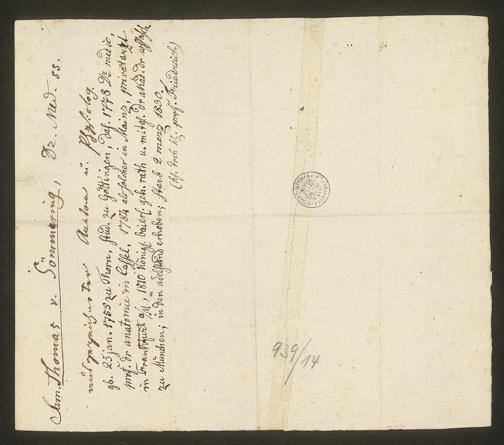 Sam. Thomas v. Sömmering, Dr. Med. ss.
ausgezeichneter Anatom u. Physiolog.
gb. 25 jan. 1755 zu Thorn, stud. zu Göttingen, das. 1778 Dr. medic.,
prof. dr anatomie in Cassel, 1784 als solcher in Mainz, privatarzt
in Frankfurt a/M, 1810 königl. baier. geh. rath u. mitgl. dr akad. dr
zu München; in den adelstand erhoben; starb 2 merz 1830.
prof. Friedreich)
939/14